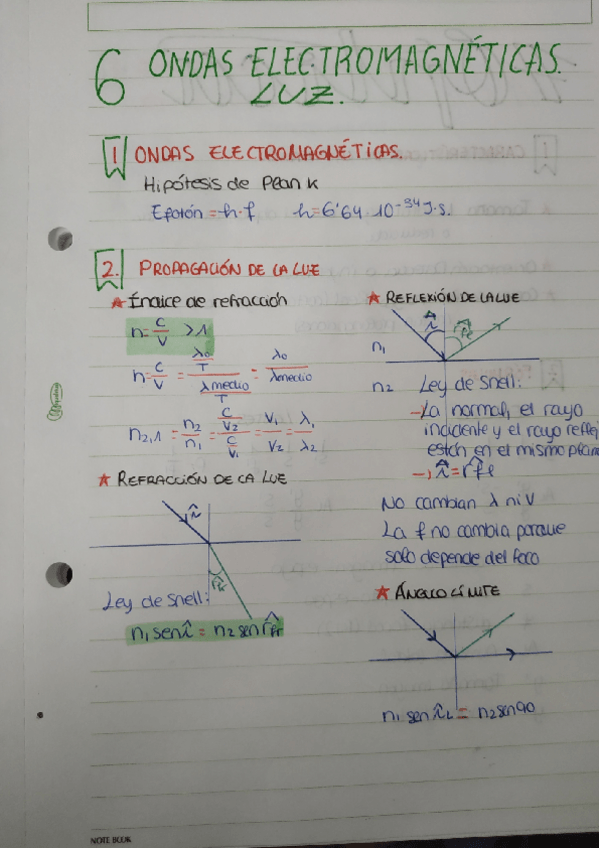 6 ONDAS ELECTROMAGNÉTICAS.
LUZ.
1 ONDAS ELECTROMAGNÉTICAS.
Hipótesis de Planck
Efotón = h·f h = 6'64·10^-34 J·s.
2. PROPAGACIÓN DE LA LUZ
★ Índice de refracción
n = c/v > 1
n = c/v = (λ0/T)/(λmedio/T) = λ0/λmedio
n2,1 = n2/n1 = (c/v2)/(c/v1) = v1/v2 = λ1/λ2
★ REFRACCIÓN DE LA LUZ
î
r̂fr
Ley de Snell:
n1 sen î = n2 sen r̂fr
★ REFLEXIÓN DE LA LUZ
î r̂fe
n1
n2 Ley de Snell:
→ La normal, el rayo
incidente y el rayo refle
están en el mismo plan
→ î = r̂fe
No cambian λ ni v
La f no cambia porque
solo depende del foco
★ ÁNGULO LÍMITE
n1 sen îL = n2 sen 90
NOTE BOOK